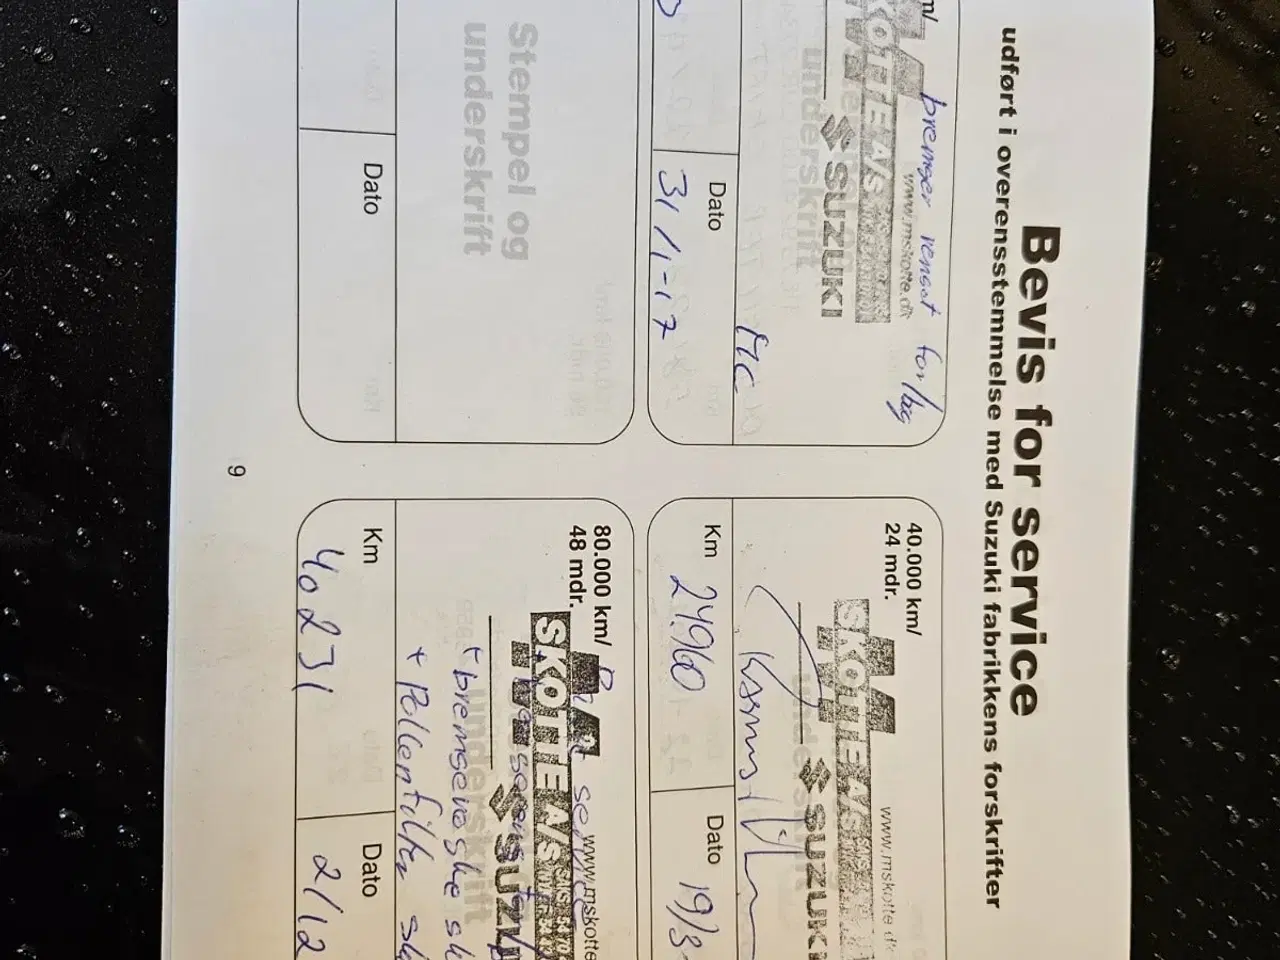 Bevis for service
udført i overensstemmelse med Suzuki fabrikkens forskrifter
m/
bremser renset
www.mskotte.dk
SKOTTE A/S
SUZUKI
MC
Dato
31/1-17
40.000 km/
24 mdr.
www.mskotte.dk
SKOTTE A/S
SUZUKI
Km
24960
Dato
19/3
Stempel og
underskrift
Dato
80.000 km/
48 mdr.
www.mskotte
SKOTTE A/S
SUZUKI
+ bremsevæske sk
+ Pollenfilter
Km
40231
Dato
2/12
9